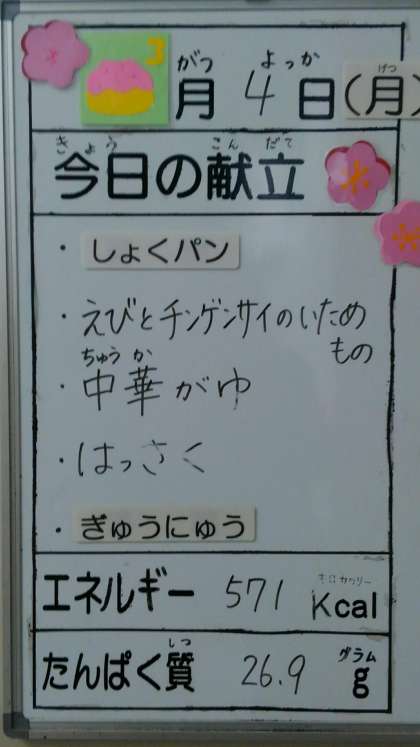 3
がつ よっか げつ
月 4 日(月)
きょう こん だて
今日の献立
・しょくパン
・えびとチンゲンサイのいため
もの
ちゅう か
・中華がゆ
・はっさく
・ぎゅうにゅう
キロカロリー
エネルギー 571 Kcal
しつ グラム
たんぱく質 26.9 g